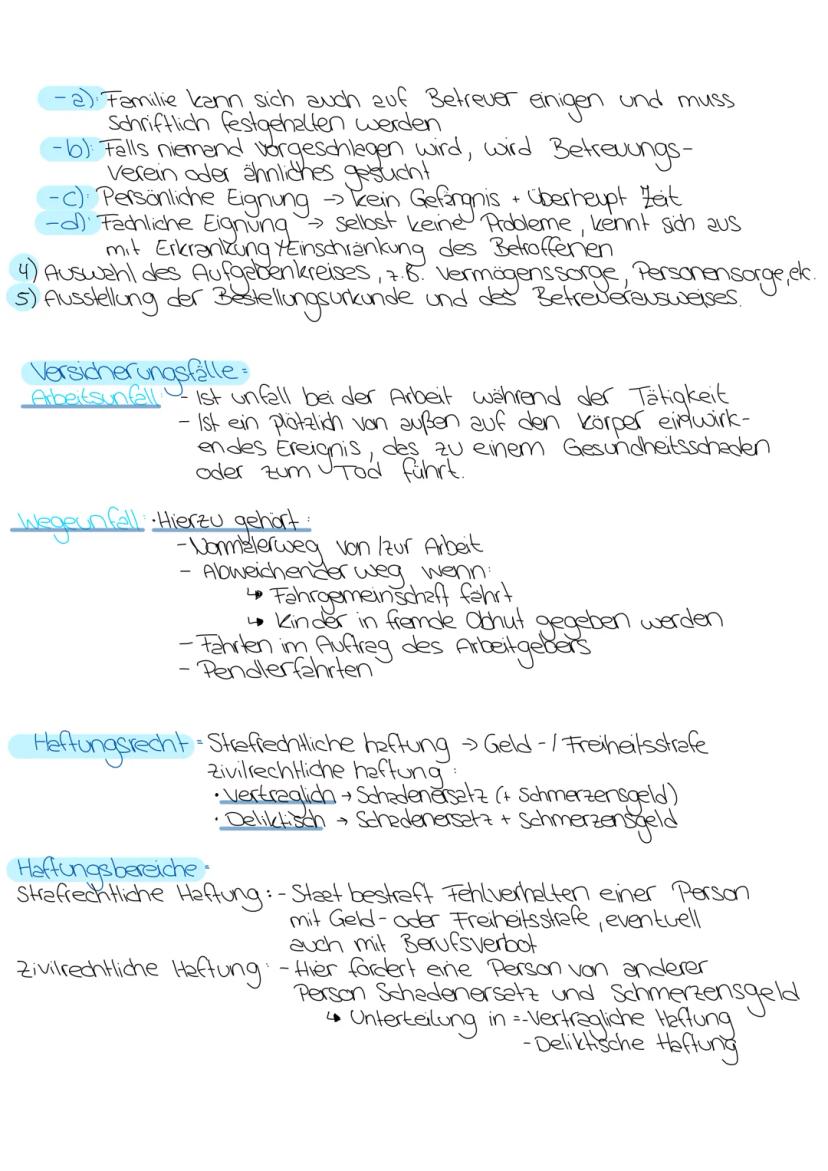 - a): Familie kann sich auch auf Betreuer einigen und muss
schriftlich festgehalten werden
- b): Falls niemand vorgeschlagen wird, wird Betreuungs-
verein oder ähnliches gesucht
- c): Persönliche Eignung → kein Gefängnis + überhaupt Zeit
- d): Fachliche Eignung → selbst keine Probleme, kennt sich aus
mit Erkrankung / Einschränkung des Betroffenen
4) Auswahl des Aufgabenkreises, z.B. Vermögenssorge, Personensorge, etc.
5) Ausstellung der Bestellungsurkunde und des Betreuerausweises.
Versicherungsfälle:
Arbeitsunfall: - Ist unfall bei der Arbeit während der Tätigkeit
- Ist ein plötzlich von außen auf den Körper einwirk-
endes Ereignis, das zu einem Gesundheitsschaden
oder zum Tod führt.
Wegeunfall: · Hierzu gehört:
- Normalerweg von / zur Arbeit
- Abweichender weg wenn:
↳ Fahrgemeinschaft fährt
↳ Kinder in fremde Obhut gegeben werden
- Fahrten im Auftrag des Arbeitgebers
- Pendlerfahrten
Haftungsrecht = Strafrechtliche haftung → Geld - / Freiheitsstrafe
zivilrechtliche haftung:
· Vertraglich → Schadenersatz (+ Schmerzensgeld)
· Deliktisch → Schadenersatz + Schmerzensgeld
Haftungsbereiche =
Strafrechtliche Haftung: - Staat bestraft Fehlverhalten einer Person
mit Geld- oder Freiheitsstrafe, eventuell
auch mit Berufsverbot
Zivilrechtliche Haftung: - Hier fordert eine Person von anderer
Person Schadenersatz und Schmerzensgeld
↳ Unterteilung in = - Vertragliche Haftung
- Deliktische Haftung